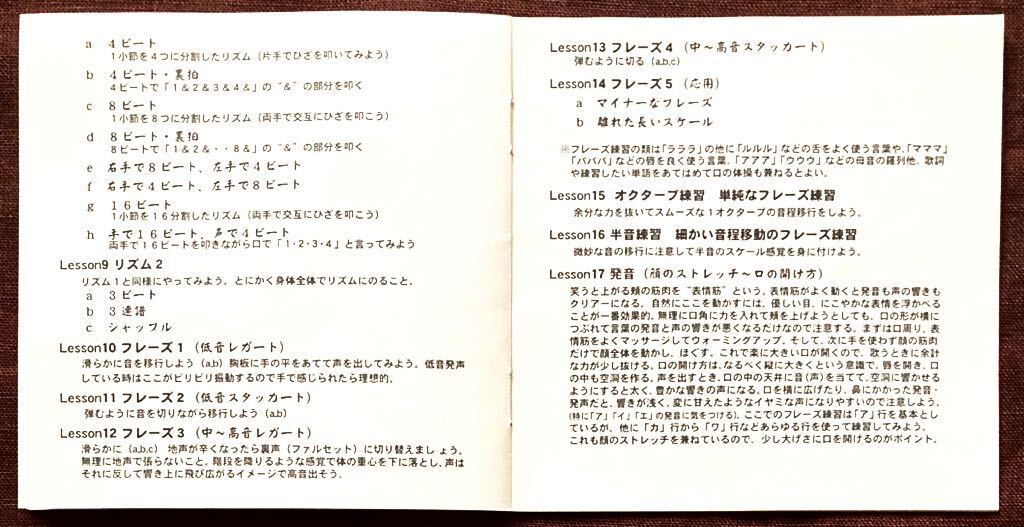 a 4ビート
1小節を4つに分割したリズム（片手でひざを叩いてみよう）
b 4ビート・裏拍
4ビートで「1＆2＆3＆4＆」の“＆”の部分を叩く
c 8ビート
1小節を8つに分割したリズム（両手で交互にひざを叩こう）
d 8ビート・裏拍
8ビートで「1＆2＆・・8＆」の“＆”の部分を叩く
e 右手で8ビート、左手で4ビート
f 右手で4ビート、左手で8ビート
g 16ビート
1小節を16分割したリズム（両手で交互にひざを叩こう）
h 手で16ビート、声で4ビート
両手で16ビートを叩きながら口で「1・2・3・4」と言ってみよう
Lesson9 リズム2
リズム1と同様にやってみよう。とにかく身体全体でリズムにのること。
a 3ビート
b 3連譜
c シャッフル
Lesson10 フレーズ1（低音レガート）
滑らかに音を移行しよう（a,b）胸板に手の平をあてて声を出してみよう。低音発声
している時はここがビリビリ振動するので手で感じられたら理想的。
Lesson11 フレーズ2（低音スタッカート）
弾むように音を切りながら移行しよう（a,b）
Lesson12 フレーズ3（中〜高音レガート）
滑らかに（a,b,c） 地声が辛くなったら裏声（ファルセット）に切り替えまし ょう。
無理に地声で張らないこと。階段を降りるような感覚で体の重心を下に落とし、声は
それに反して響き上に飛び広がるイメージで高音出そう。
Lesson13 フレーズ4（中〜高音スタッカート）
弾むように切る（a,b,c）
Lesson14 フレーズ5（応用）
a マイナーなフレーズ
b 離れた長いスケール
※フレーズ練習の類は「ラララ」の他に「ルルル」などの舌をよく使う言葉や、「マママ」
「パパパ」などの唇を良く使う言葉、「アアア」「ウウウ」などの母音の羅列他、歌詞
や練習したい単語をあてはめて口の体操も兼ねるとよい。
Lesson15 オクターブ練習 単純なフレーズ練習
余分な力を抜いてスムーズな1オクターブの音程移行をしよう。
Lesson16 半音練習 細かい音程移動のフレーズ練習
微妙な音の移行に注意して半音のスケール感覚を身に付けよう。
Lesson17 発音（顔のストレッチ〜口の開け方）
笑うと上がる頬の筋肉を“表情筋”という。表情筋がよく動くと発音も声の響きも
クリアーになる。自然にここを動かすには、優しい目、にこやかな表情を浮かべる
ことが一番効果的。無理に口角に力を入れて頬を上げようとしても、口の形が横に
つぶれて言葉の発音と声の響きが悪くなるだけなので注意する。まずは口周り、表
情筋をよくマッサージしてウォーミングアップ。そして、次に手を使わず顔の筋肉
だけで顔全体を動かし、ほぐす。これで楽に大きい口が開くので、歌うときに余計
な力が少し抜ける。口の開け方は、なるべく縦に大きくという意識で、唇を開き、口
の中も空洞を作る。声を出すとき、口の中の天井に音（声）を当てて、空洞に響かせる
ようにすると太く、豊かな響きの声になる。口を横に広げたり、鼻にかかった発音・
発声だと、響きが浅く、変に甘えたようなイヤミな声になりやすいので注意しよう。
（特に「ア」「イ」「エ」の発音に気をつける）。ここでのフレーズ練習は「ア」行を基本とし
ているが、他に「カ」行から「ワ」行などあらゆる行を使って練習してみよう。
これも顔のストレッチを兼ねているので、少し大げさに口を開けるのがポイント。